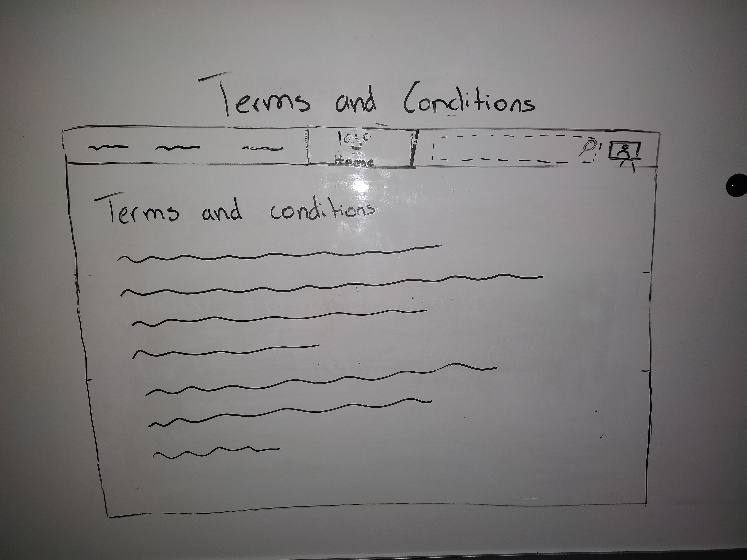 Terms and Conditions
logo
Home
Terms and conditions